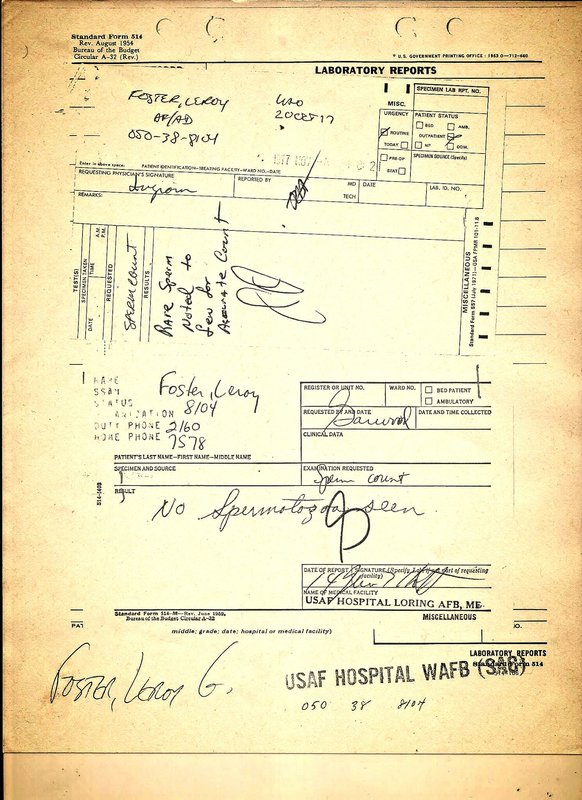 Standard Form 514
Rev. August 1954
Bureau of the Budget
Circular A-32 (Rev.)
LABORATORY REPORTS
FOSTER, LEROY
050-38-8104
SPECIMEN LAB RPT. NO.
MISC.
URGENCY
PATIENT STATUS
BED
AMB.
ROUTINE
OUTPATIENT
TODAY
NP
DOM.
PRE-OP
STAT
SPECIMEN SOURCE (Specify)
Enter in above space:
PATIENT IDENTIFICATION—TREATING FACILITY—WARD NO.—DATE
REQUESTING PHYSICIAN'S SIGNATURE
REPORTED BY
MD
TECH
DATE
LAB. ID. NO.
REMARKS:
TEST(S)
SPECIMEN TAKEN
DATE
TIME
A.M.
P.M.
REQUESTED
SPERM COUNT
RESULTS
RARE SPERM
NOTED to
few for
Accurate Count
MISCELLANEOUS
NAME
Foster, Leroy
SSAN
8104
STATUS
DUTY PHONE 2160
HOME PHONE 7578
PATIENT'S LAST NAME—FIRST NAME—MIDDLE NAME
REGISTER OR UNIT NO.
WARD NO.
BED PATIENT
AMBULATORY
REQUESTED BY AND DATE
DATE AND TIME COLLECTED
CLINICAL DATA
SPECIMEN AND SOURCE
EXAMINATION REQUESTED
Sperm count
514-140B
RESULT
No Spermatozoa seen.
DATE OF REPORT
NAME OF MEDICAL FACILITY
USAF HOSPITAL LORING AFB, ME
Standard Form 514-M—Rev. June 1959.
Bureau of the Budget Circular A-32
MISCELLANEOUS
PAT
middle; grade; date; hospital or medical facility)
LABORATORY REPORTS
Standard Form 514
USAF HOSPITAL WAFB (SAC)
FOSTER, LEROY G.
050 38 8104